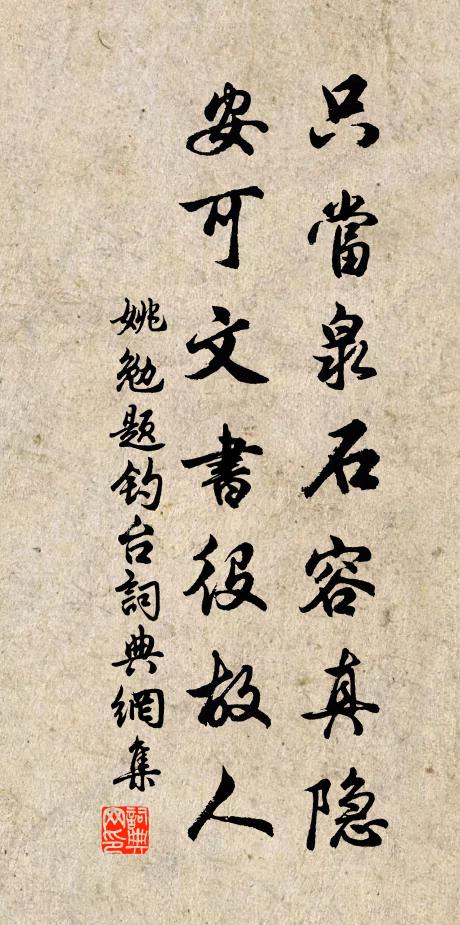 只當泉石容真隐
安可文書役故人
姚勉题钓台詞典網集
詞典网印